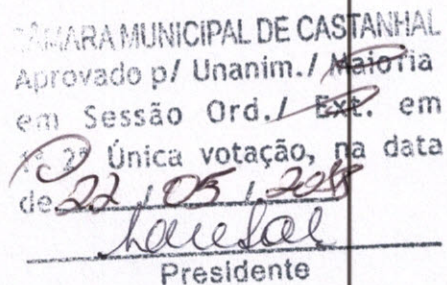 CÂMARA MUNICIPAL DE CASTANHAL
Aprovado p/ Unanim./ Maioria
em Sessão Ord./ Ext. em
1ª 2ª Única votação, na data
de 22 / 05 /
Presidente